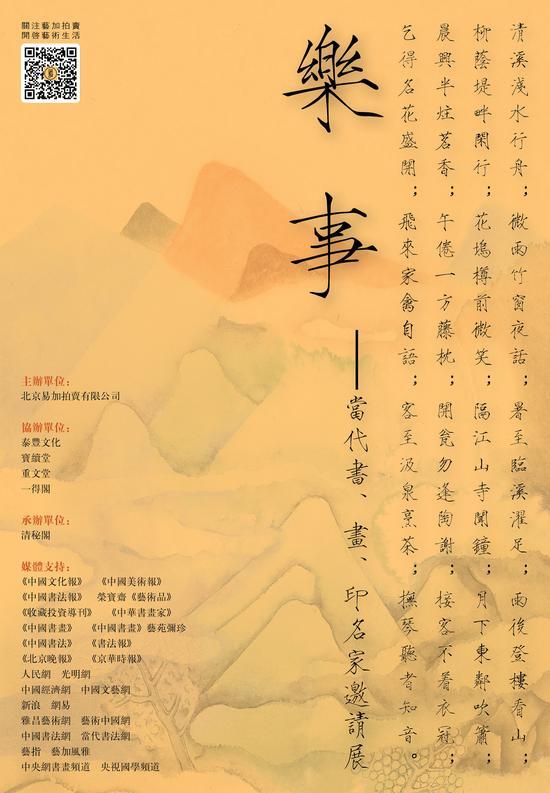 關注藝加拍賣
開啓藝術生活
樂事
——當代書、畫、印名家邀請展
清溪淺水行舟；微雨竹窗夜話；暑至臨溪濯足；雨後登樓看山；
柳蔭堤畔閑行；花塢樽前微笑；隔江山寺聞鐘；月下東鄰吹簫；
晨興半炷茗香；午倦一方藤枕；開瓮勿逢陶謝；接客不着衣冠；
乞得名花盛開；飛來家禽自語；客至汲泉烹茶；撫琴聽者知音。
主辦單位：
北京易加拍賣有限公司
協辦單位：
泰豐文化
寶續堂
重文堂
一得閣
承辦單位：
清秘閣
媒體支持：
《中國文化報》 《中國美術報》
《中國書法報》 榮寶齋《藝術品》
《收藏投資導刊》 《中華書畫家》
《中國書畫》 《中國書畫》藝苑彌珍
《中國書法》 《書法報》
《北京晚報》 《京華時報》
人民網 光明網
中國經濟網 中國文藝網
新浪 網易
雅昌藝術網 藝術中國網
中國書法網 當代書法網
藝指 藝加風雅
中央網書畫頻道 央視國學頻道